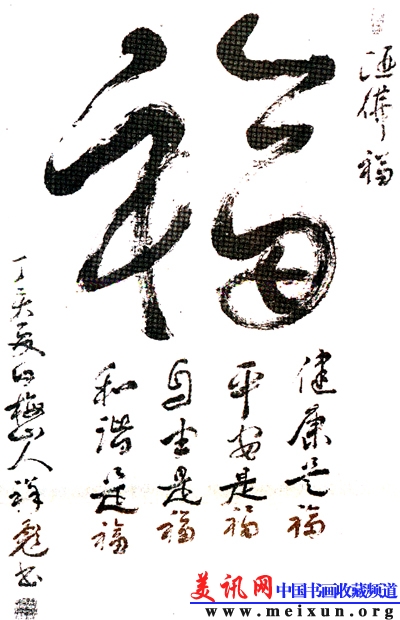 福
福
健康是福
平安是福
自在是福
和谐是福
丁亥夏白梅山人祥彪书
美讯网 中国书画收藏频道
www.meixun.org